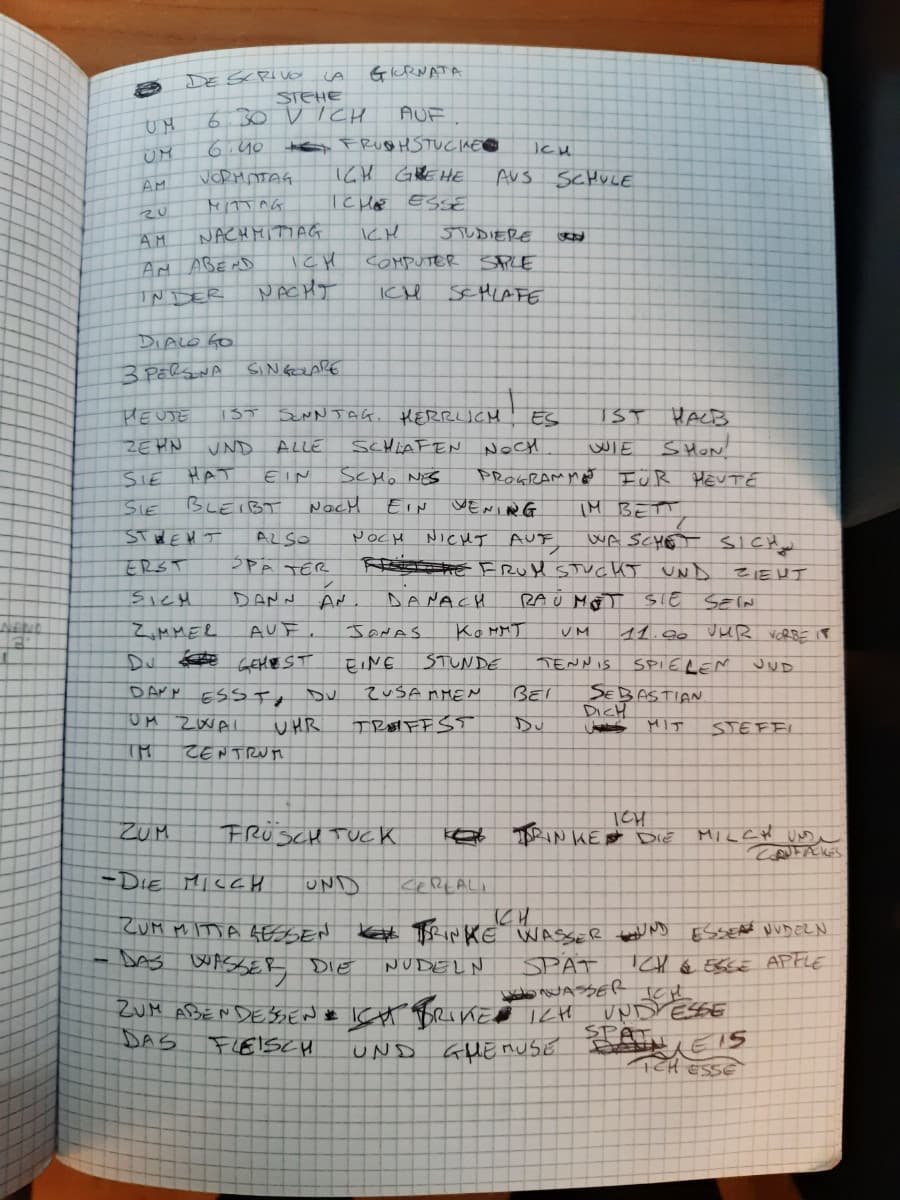 DESCRIVO LA GIORNATA
STEHE
UM 6 30 V ICH AUF.
UM 6.40 FRUHSTUCKE ICH
AM VORMITTAG ICH GEHE AUS SCHULE
ZU MITTAG ICH ESSE
AM NACHMITTAG ICH STUDIERE
AM ABEND ICH COMPUTER SPLE
IN DER NACHT ICH SCHLAFE
DIALOGO
3 PERSONA SINGOLARE
HEUTE IST SONNTAG. HERRLICH! ES IST HALB
ZEHN UND ALLE SCHLAFEN NOCH. WIE SHON!
SIE HAT EIN SCHONES PROGRAMM FÜR HEUTE
SIE BLEIBT NOCH EIN WENING IM BETT,
STEHT ALSO NOCH NICHT AUF, WASCHET SICH
ERST SPÄTER, FRUHSTUCHT UND ZIEHT
SICH DANN AN. DANACH RAÜMET SIE SEIN
ZIMMER AUF. JONAS KOMMT UM 11.00 UHR VORBEIT
DU GEHEST EINE STUNDE TENNIS SPIELEN UND
DANN ESST, DU ZUSAMMEN BEI SEBASTIAN
UM ZWAI UHR TRIFFST DU DICH MIT STEFFI
IM ZENTRUM
ZUM FRÜSCHTUCK TRINKE ICH DIE MILCH UND
CORNFLAKES
- DIE MILCH UND CEREALI
ZUM MITTAGESSEN TRINKE ICH WASSER UND ESSE NUDELN
- DAS WASSER, DIE NUDELN SPÄT ICH ESSE APFLE
ZUM ABENDESSEN TRIKE ICH WASSER UND ICH ESSE
DAS FLEISCH UND GHEMUSE SPAT EIS
ICH ESSE